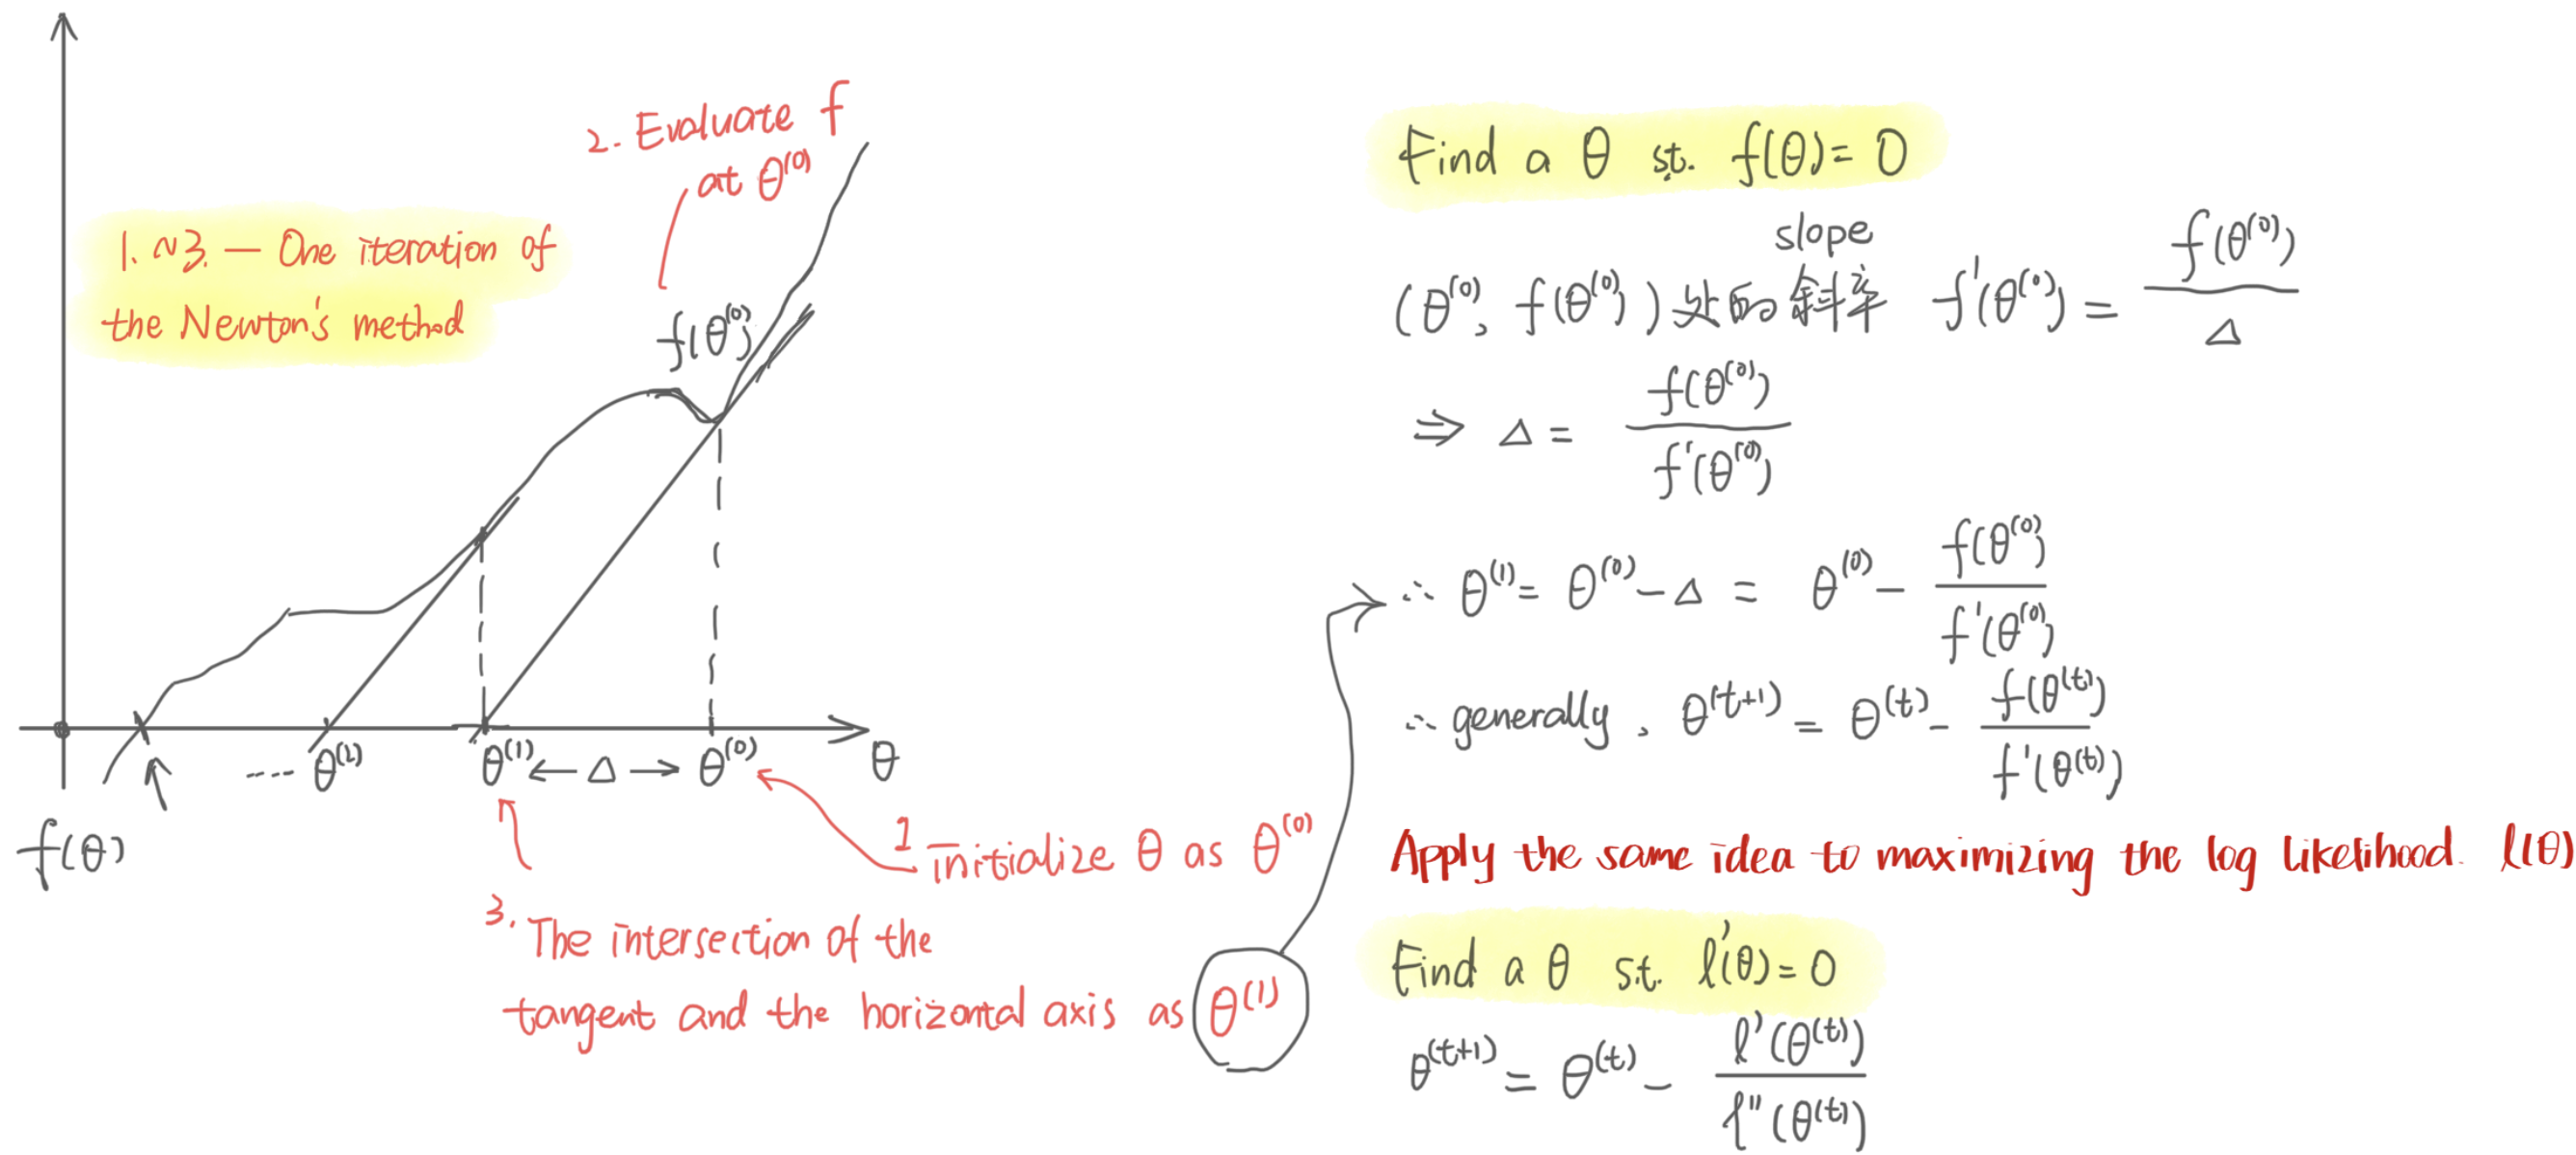 2. Evaluate f
at θ⁽⁰⁾
1. ~3. — One iteration of
the Newton's method
f(θ⁽⁰⁾)
---- θ⁽²⁾
θ⁽¹⁾ ← Δ → θ⁽⁰⁾
θ
f(θ)
1 initialize θ as θ⁽⁰⁾
3. The intersection of the
tangent and the horizontal axis as θ⁽¹⁾
Find a θ st. f(θ) = 0
slope
(θ⁽⁰⁾, f(θ⁽⁰⁾)) 处的斜率 f'(θ⁽⁰⁾) = f(θ⁽⁰⁾) / Δ
⇒ Δ = f(θ⁽⁰⁾) / f'(θ⁽⁰⁾)
∴ θ⁽¹⁾ = θ⁽⁰⁾ − Δ = θ⁽⁰⁾ − f(θ⁽⁰⁾) / f'(θ⁽⁰⁾)
∴ generally, θ⁽ᵗ⁺¹⁾ = θ⁽ᵗ⁾ − f(θ⁽ᵗ⁾) / f'(θ⁽ᵗ⁾)
Apply the same idea to maximizing the log likelihood. ℓ(θ)
Find a θ s.t. ℓ'(θ) = 0
θ⁽ᵗ⁺¹⁾ = θ⁽ᵗ⁾ − ℓ'(θ⁽ᵗ⁾) / ℓ''(θ⁽ᵗ⁾)